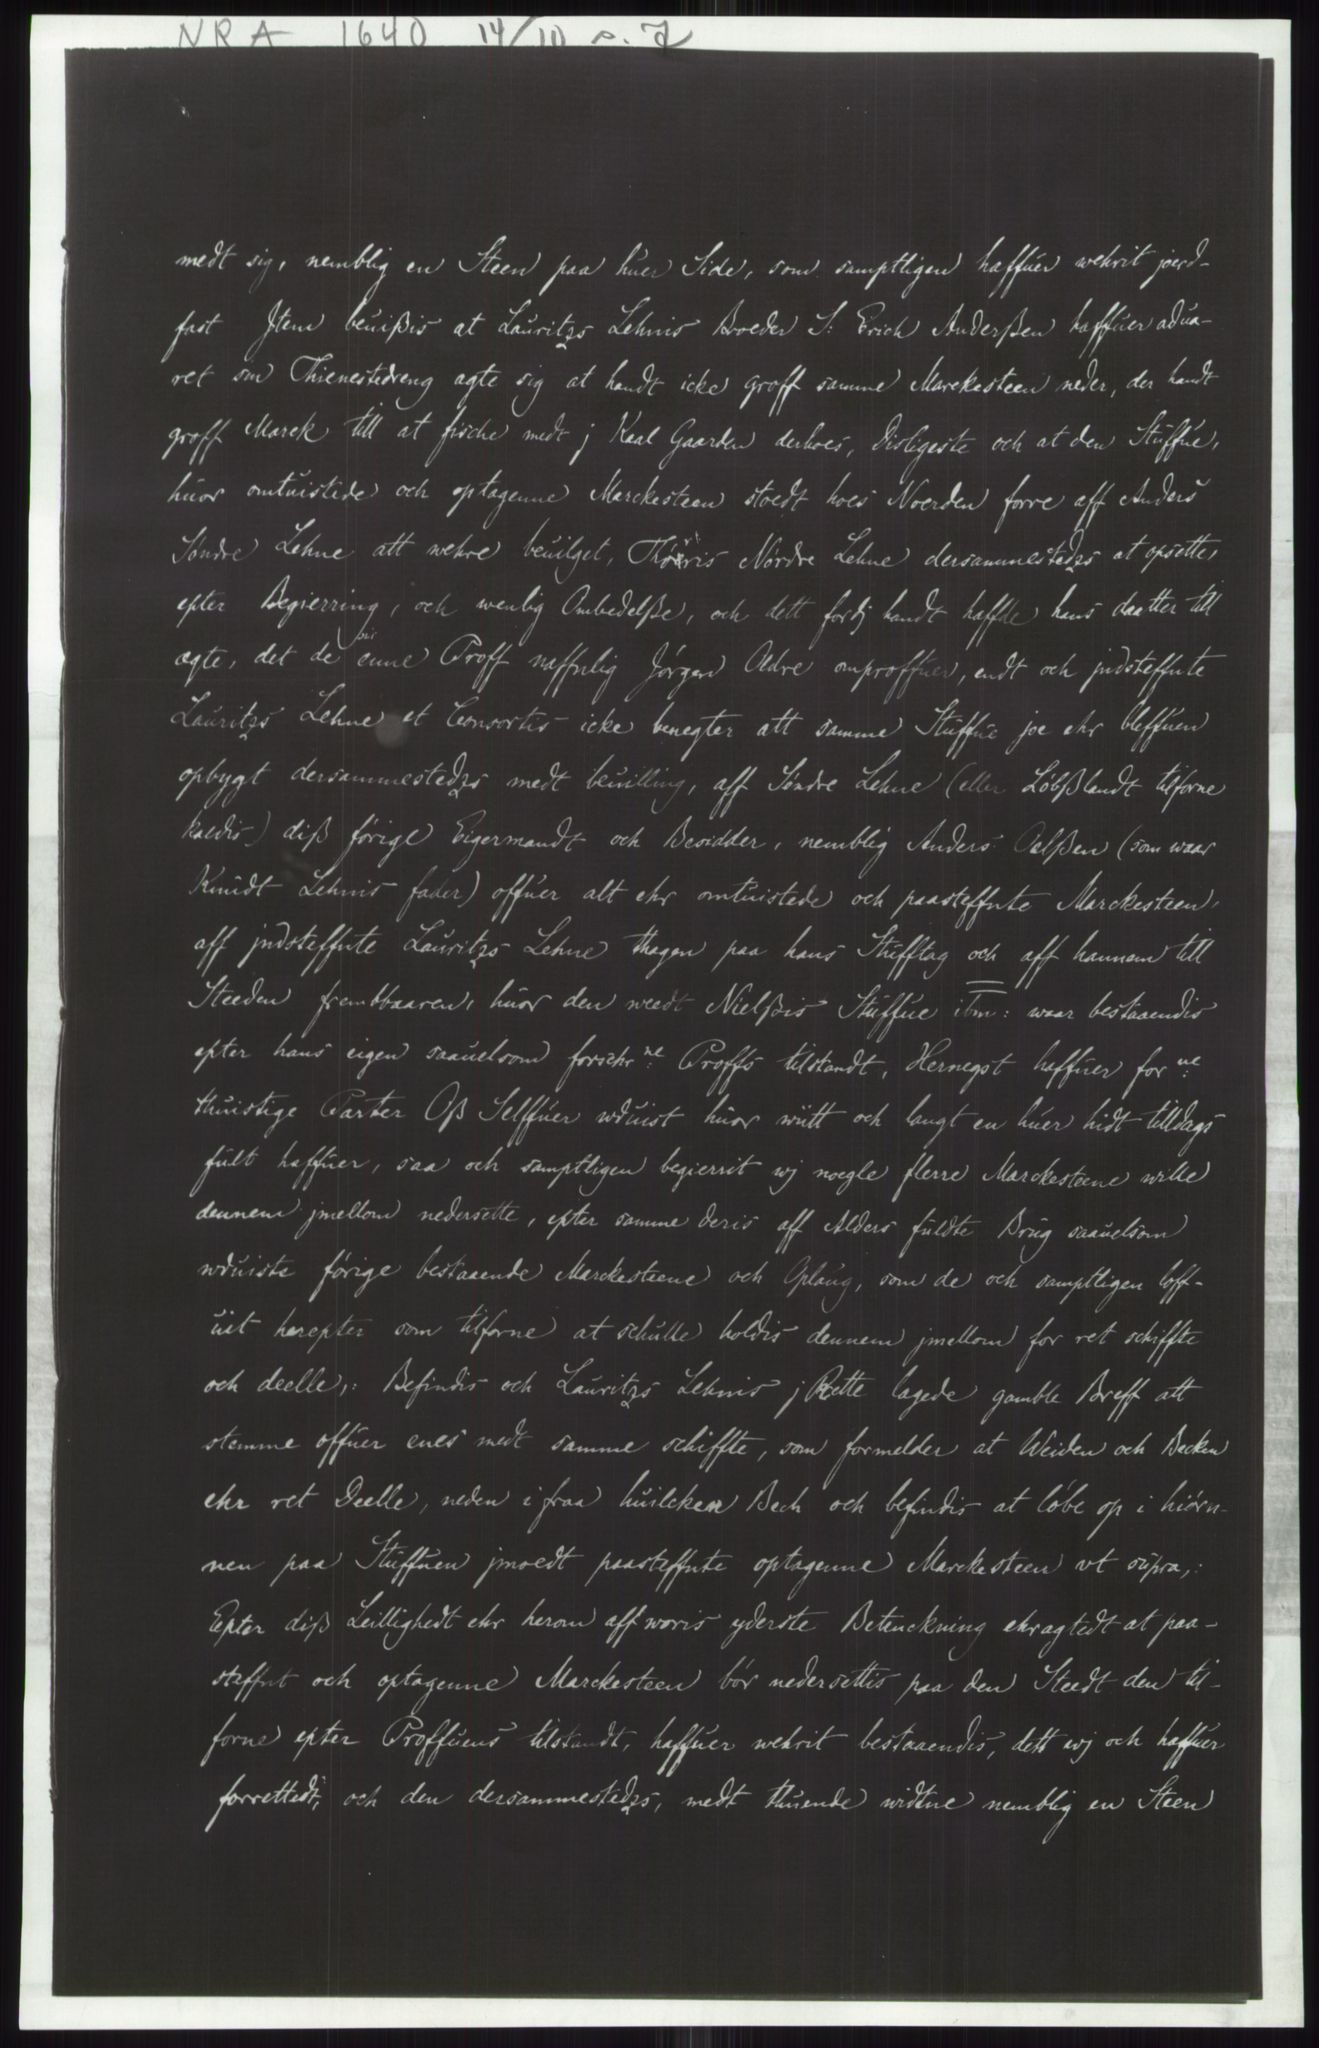 NRA 1640 14/10 s. 7
medt sig, nemblig en Steen paa huer Side, som samptligen haffuer wehrit joerd-
fast Jtem beuißis at Lauritzs Lehnis Broeder S: Erich Anderßen haffuer adua-
ret sin Thienestedreng agte sig at handt icke groff samme Marckesteen neder, der handt
groff Marck till at fische medt j Kaal Gaarden derhoes, Disligeste och at den Stuffue,
huor omtuistede och optagenne Marckesteen stoedt hoes Noerden forre aff Anders
Søndre Lehne att wehre beuilget, Thorris Nørdre Lehne dersammestedzs at opsette,
epter Begierring, och wenlig Ombedelße, och dett fordj handt haffde hans daatter till
ægte, det de enne Proff naffnlig Jørgen Odre omproffuer, endt och jndsteffnte
Lauritzs Lehne et Consortis icke benegter att samme Stuffue joe ehr bleffuen
opbygt dersammestedzs medt beuilling, aff Søndre Lehne (eller Løbßlandt tilforne
kaldis) diß førige Eigermandt och Besidder, nemblig Anders Oelßen (som waar
Knudt Lehnis fader) offuer alt ehr omtuistede och paasteffnte Marckesteen,
aff jndsteffnte Lauritzs Lehne thagen paa hans Stufftag och aff hannem till
Steeden frembbaaren, huor den weedt Nielßis Stuffue ibm: waar bestaaendis
epter hans eigen saauelsom forschr:ne Proffs tilstandt, Hernegst haffuer for:ne
thuistige Parter Oß Selffuer wduist huor wiitt och langt en huer hidt tilldags
fult haffuer, saa och samptligen begierrit wj noegle flerre Marckesteene wille
dennem jmellom nedersette, epter samme deris aff Alders fuldte Brug saauelsom
wduiste førige bestaaende Marckesteene och Oplaug, som de och samptligen loff-
uit herepter som tilforne at schulle holdis dennem jmellom for ret schiffte
och deelle,: Befindis och Lauritzs Lehnis j Rette lagede gamble Breff att
stemme offuer enes medt samme schiffte, som formelder at Weiden och Becken
ehr ret Deelle, neden i fraa huilcken Bech och befindis at løbe op i hiørn-
nen paa Stuffuen jmoedt paasteffnte optagenne Marckesteen vt supra,:
Epter diß Leillighedt ehr herom aff woris yderste Betenckning ehragtedt at paa-
steffnt och optagenne Marckesteen bør nedersettis paa den Steedt den til-
forne epter Proffuens tilstandt, haffuer wehrit bestaaendis, dett wj och haffuer
forrettedt, och den dersammestedzs, medt thuende widtne nemblig en Steen